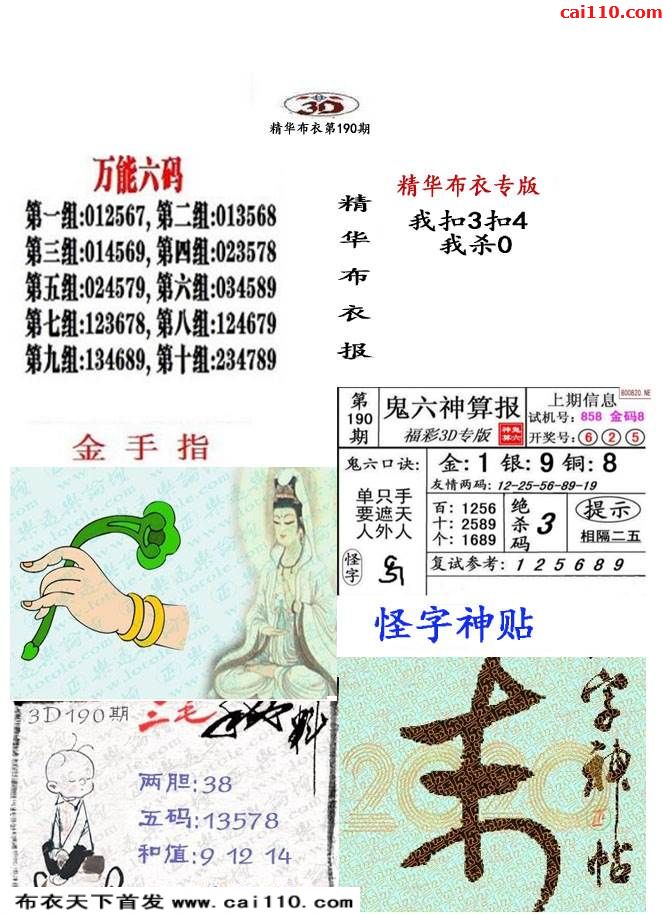 cai110.com
3D
精华布衣第190期
万能六码
第一组:012567, 第二组:013568
第三组:014569, 第四组:023578
第五组:024579, 第六组:034589
第七组:123678, 第八组:124679
第九组:134689, 第十组:234789
精华布衣报
精华布衣专版
我扣3扣4
我杀0
金手指
第190期
鬼六神算报
福彩3D专版
上期信息
试机号: 858 金码8
开奖号: 6 2 5
鬼六口诀:
单只手
要遮天
人外人
怪字
金: 1 银: 9 铜: 8
友情两码: 12-25-56-89-19
百: 1256
十: 2589
个: 1689
绝杀码 3
提示
相隔二五
复试参考: 1 2 5 6 8 9
怪字神贴
字神帖
2020
3D190期 三毛
两胆:38
五码:13578
和值:9 12 14
布衣天下首发 www.cai110.com